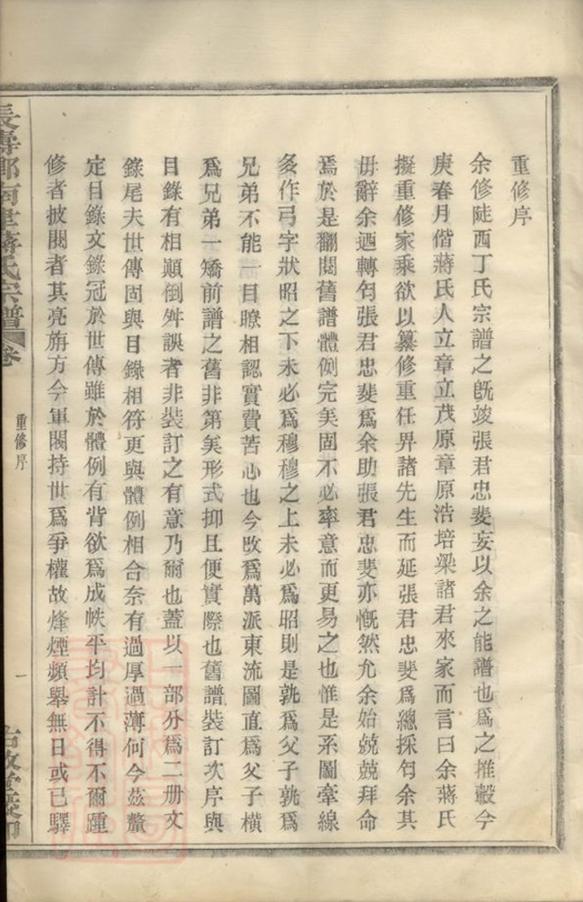 重修序
余修陡西丁氏宗譜之旣竣張君忠斐妄以余之能譜也爲之推轂今
庚春月偕蔣氏人立章立茂原章原浩培梁諸君來家而言曰余蔣氏
擬重修家乘欲以纂修重任畀諸先生而延張君忠斐爲總採匄余其
毋辭余迺轉匄張君忠斐爲余助張君忠斐亦慨然允余始兢兢拜命
焉於是翻閱舊譜體例完美固不必率意而更易之也惟是系圖牽線
多作弓字狀昭之下未必爲穆穆之上未必爲昭則是孰爲父子孰爲
兄弟不能一目暸然相認實費苦心也今改爲萬派東流圖直爲父子橫
爲兄弟一矯前譜之舊非第美形式抑且便實際也舊譜裝訂次序與
目錄有相顚倒舛誤者非裝訂之有意乃爾也蓋以一部分爲二册文
錄尾夫世傳固與目錄相符更與體例相合奈有過厚過薄何今茲釐
定目錄文錄冠於世傳雖於體例有背欲爲成帙平均計不得不爾踵
修者披閱者其亮旃方今軍閥持世爲爭權故烽煙頻舉無日或已驛
長壽鄉南里蔣氏宗譜
卷
重修序
一